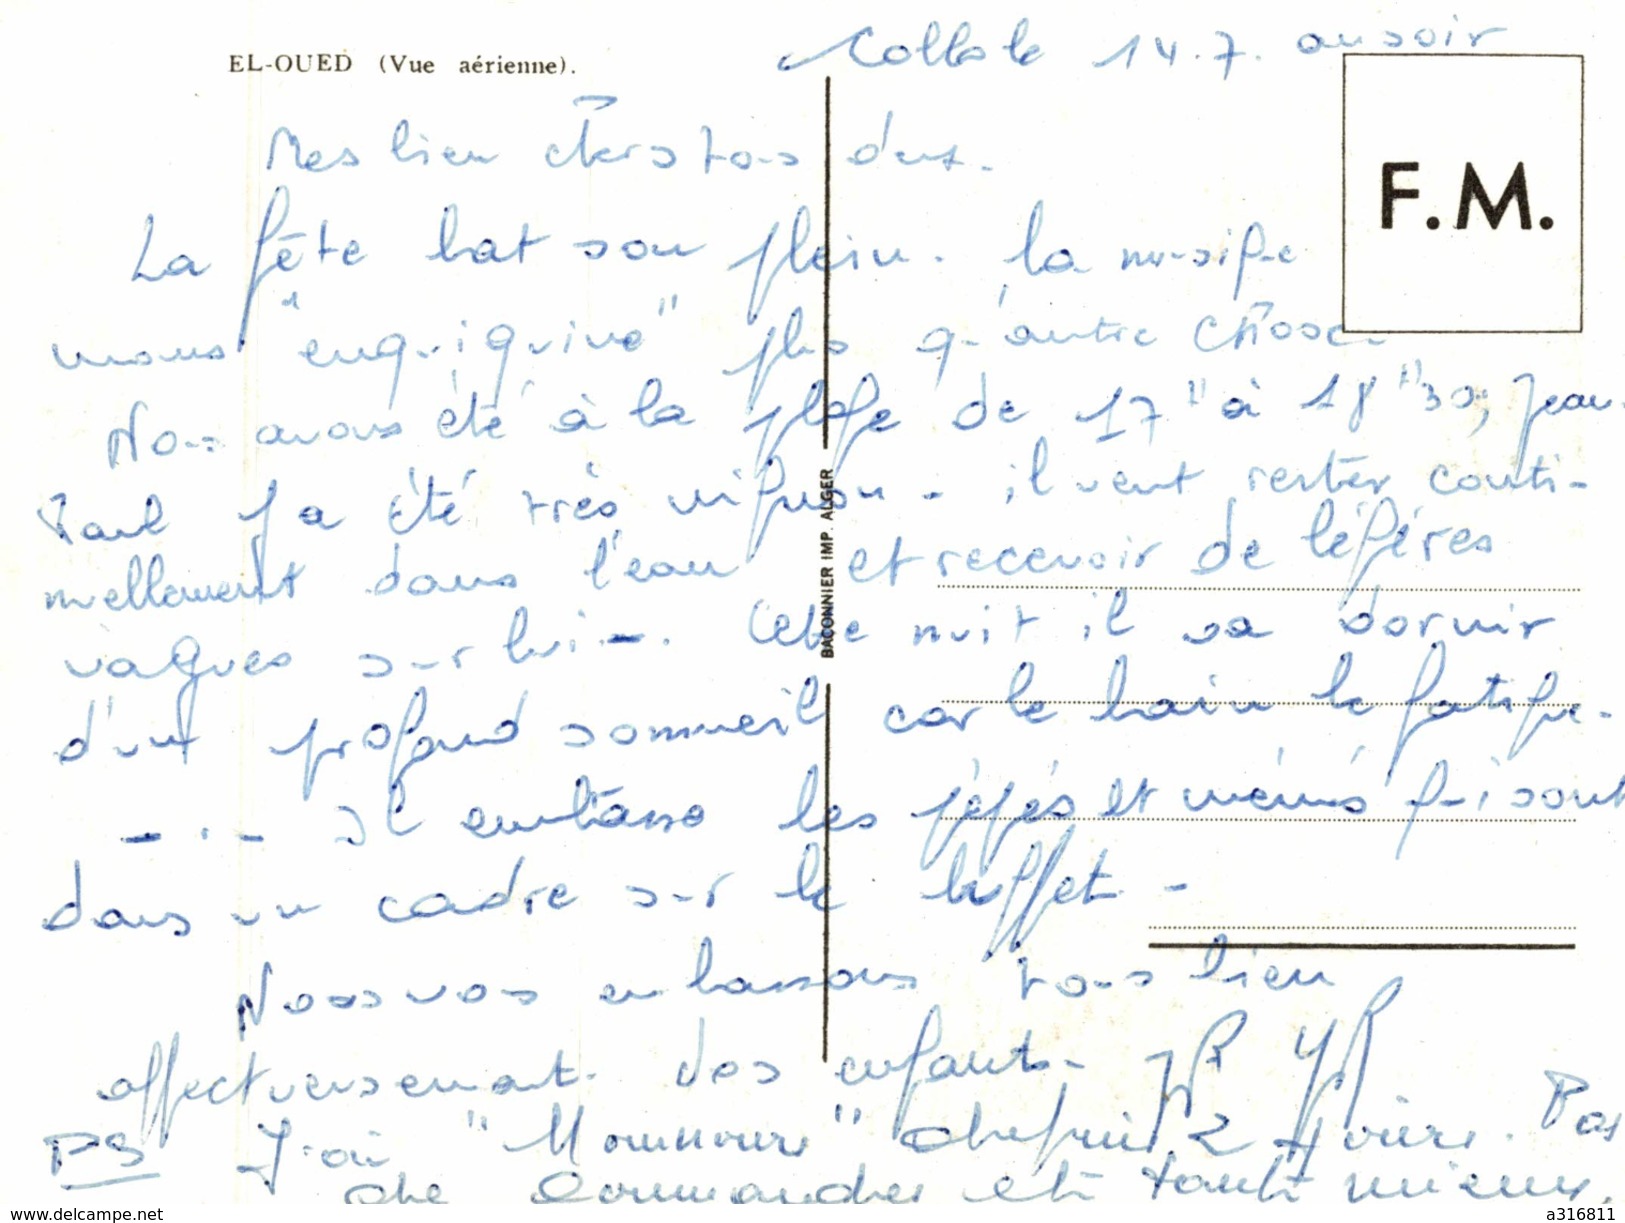 EL-OUED (Vue aérienne).
Collo le 14.7. au soir
F.M.
Mes bien chers tous deux.
La fête bat son plein. la musique
nous "enquiquine" plus qu'autre chose
Nous avons été à la plage de 17" à 18"30, Jean-
Paul y a été très mignon - il veut rester conti-
nuellement dans l'eau et recevoir de légères
vagues sur lui -. Cette nuit il va dormir
d'un profond sommeil car le bain le fatigue.
- . - Il embrasse les pépés et mémés qui sont
dans un cadre sur le buffet -
Nous vous embrassons tous bien
affectueusement. Vos enfants.
PS J'ai "Mounoune" depuis 2 jours. Pas
de commandes et tant mieux.
BACONNIER IMP. ALGER
www.delcampe.net
a316811